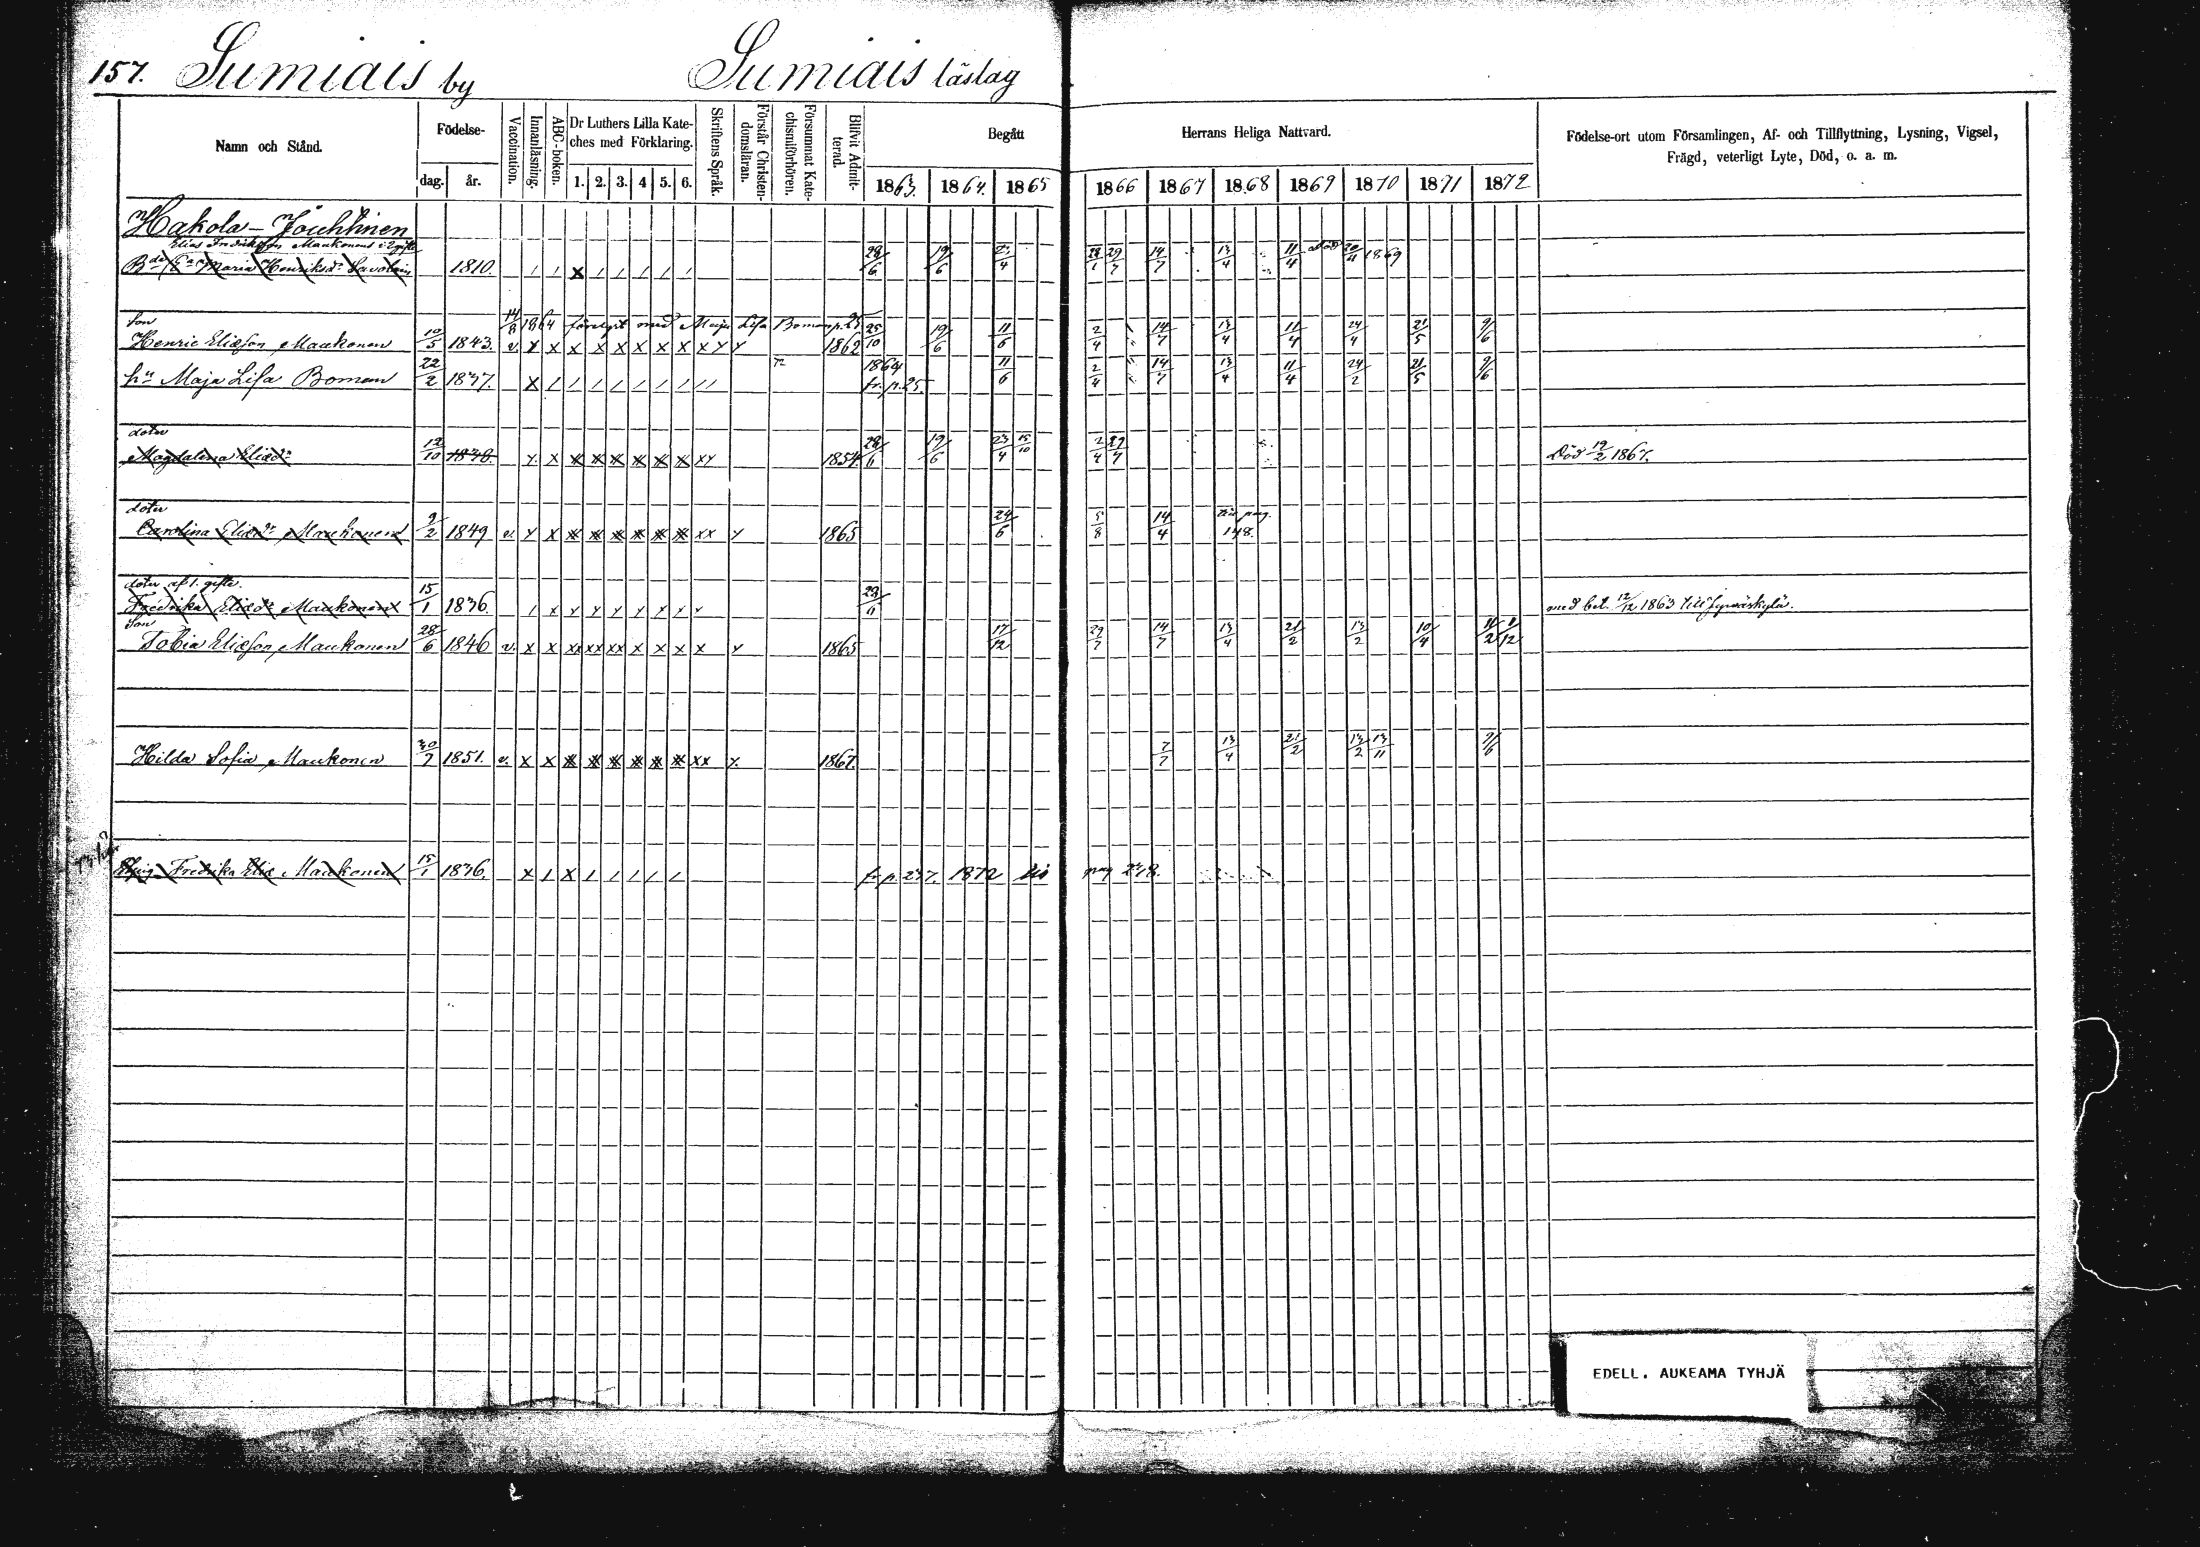 157. Sumiais by Sumiais läslag
Namn och Stånd. Födelse- dag. år. Vaccination. Innanläsning. ABC-boken. Dr Luthers Lilla Kateches med Förklaring. 1. 2. 3. 4 5. 6. Skriftens Språk. Förstår Christendomsläran. Försummat Katechismiförhören. Blifvit Admitterad. Begått Herrans Heliga Nattvard. Födelse-ort utom Församlingen, Af- och Tillflyttning, Lysning, Vigsel, Frägd, veterligt Lyte, Död, o. a. m.
1863. 1864. 1865 1866 1867 1868 1869 1870 1871 1872
Hakola-
Elias Maukonens
Maria Henriksdr Savolain 1810. 28/6 19/6 23/4 14/7 13/4 11/4 död 20/11 1869
Son 14/8 1864 med Maja Lisa Boman p. 25
Henric Eliæson Maukonen 10/5 1843. v. x x x x x x x x x x x 1862 25/10 19/6 11/6 2/4 14/7 13/4 11/4 24/4 21/5 9/6
hu Maja Lisa Boman 22/2 1837. x 1864 fr. p. 25. 11/6 2/4 14/7 13/4 11/4 24/2 21/5 9/6
doter
Magdalena Eliædr 12/10 1838 x x x x x x x x xx 1854 28/6 19/6 23/4 15/10 2/4 29/7 Död 19/2 1867.
doter
Carolina Eliædr Maukonen 9/2 1849 v. x x x x x x x x xx x 1865 24/6 5/8 14/4 pag. 148.
doter af 1. gifte.
Fredrika Eliædr Maukonen 15/1 1836. 28/6 med bet. 12/12 1863 till Jyväskylä.
Son
Tobias Eliæson Maukonen 28/6 1846 v. x x xx xx xx x x x x x 1865 17/12 29/7 14/7 13/4 21/2 13/2 10/4 11/2 8/12
Hilda Sofia Maukonen 30/7 1851. v. x x x x x x x x xx x 1867. 7/7 13/4 21/2 13/2 13/11 9/6
Fredrika Eliæ Maukonen 15/1 1836. x x fr. p. 237. 1872 pag 238.
EDELL. AUKEAMA TYHJÄ